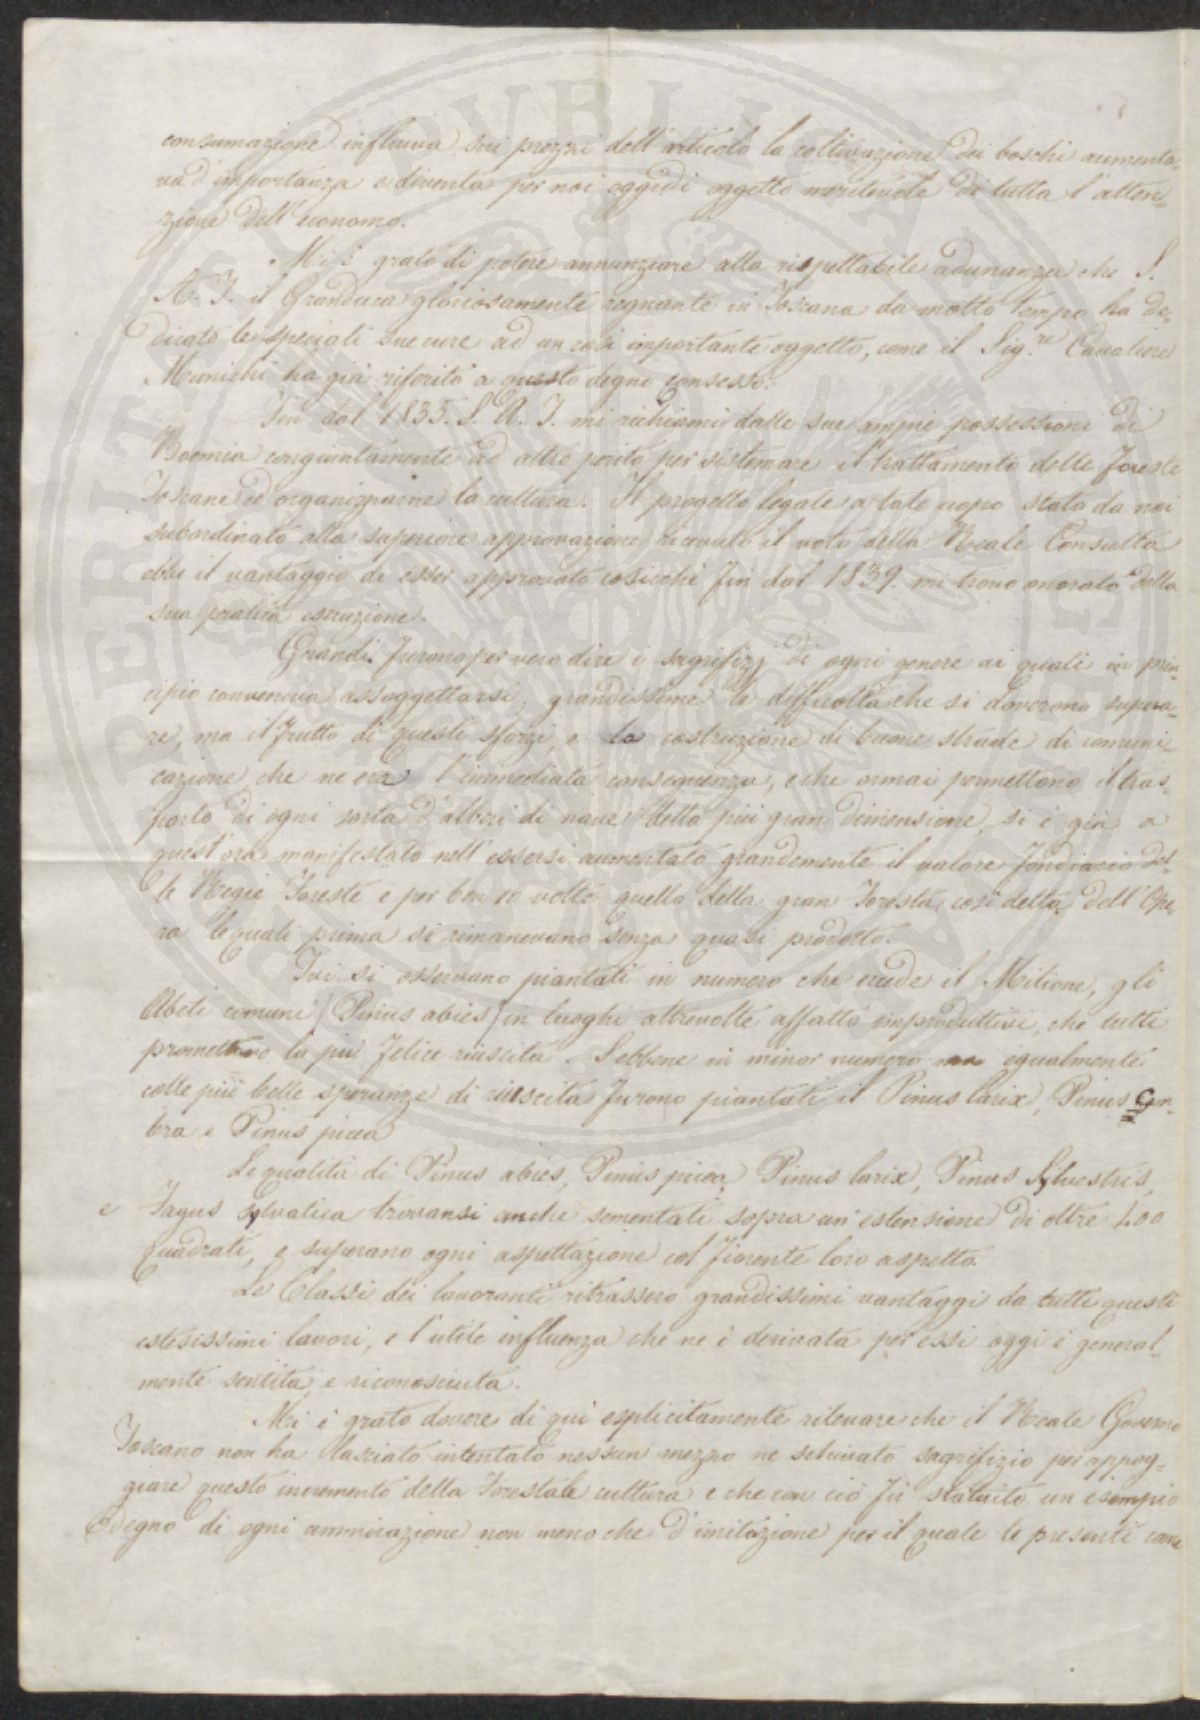 consumazione influiva sui prezzi dell'articolo la coltivazione dei boschi aumenta-
va d'importanza e diventa per noi oggidì oggetto meritevole di tutta l'atten-
zione dell'economo.
Mi è grato di potere annunziare alla rispettabile adunanza che S.
A. I. il Granduca gloriosamente regnante in Toscana da molto tempo ha de-
dicato le speciali sue cure ad un così importante oggetto, come il Sig.re Cavaliere
ha già riferito a questo degno consesso.
Fin dal 1835. S. A. I. mi richiamò dalle sue ampie possessioni di
Boemia congiuntamente ad altro perito per sistemare il trattamento delle Foreste
Toscane ed organizzarne la cultura. Il progetto legale a tale uopo stato da noi
subordinato alla superiore approvazione ricevuto il voto della Reale Consulta
ebbe il vantaggio di esser approvato cosicchè fin dal 1839. mi trovo onorato della
sua pratica esecuzione.
Grandi furono per vero dire i sagrifizj di ogni genere ai quali in prin-
cipio conveniva assoggettarsi, grandissime le difficoltà che si doverono supera-
re, ma il frutto di questi sforzi, e la costruzione di buone strade di comuni-
cazione, che ne era l'immediata conseguenza, e che ormai permettono il tras-
porto di ogni sorta d'alberi di nave della più gran dimensione, si è già a
quest'ora manifestato nell'essersi aumentato grandemente il valore fondiario del-
le Regie Foreste e per ben 10 volte quello della gran Foresta così detta dell'Ope-
ra le quali prima si rimanevano senza quasi prodotto.
Ivi si osservano piantati in numero che eccede il Milione, gli
Abeti comuni (Pinus abies) in luoghi altrevolte affatto improduttivi, che tutti
promettono la più felice riuscita. Sebbene in minor numero ma egualmente
colle più belle speranze di riuscita furono piantati il Pinus larix, Pinus Cem-
bra e Pinus picea
Le qualità di Pinus abies, Pinus picea, Pinus larix, Pinus Sylvestris,
e Fagus sylvatica trovansi anche sementati sopra un'estensione di oltre 400
quadrati, e superano ogni aspettazione col fiorente loro aspetto.
Le Classi dei lavoranti ritrassero grandissimi vantaggi da tutti questi
estesissimi lavori, e l'utile influenza che ne è derivata per essi oggi è general-
mente sentita e riconosciuta.
Mi è grato dovere di qui esplicitamente rilevare che il Reale Governo
Toscano non ha lasciato intentato nessun mezzo nè schivato sagrifizio per appog-
giare questo incremento della Forestale cultura e che con ciò fù statuito un esempio
degno di ogni ammirazione non meno che d'imitazione per il quale le presenti come